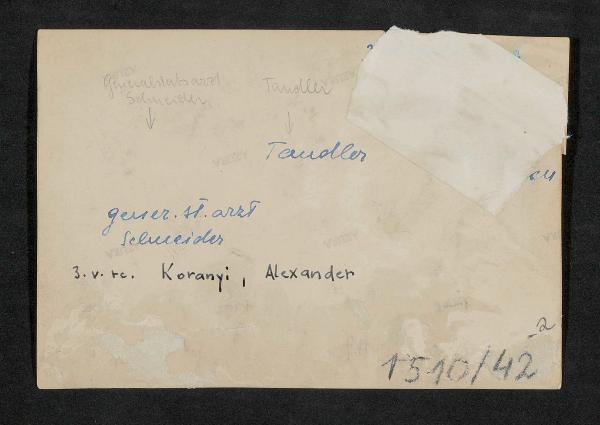 Generalstabsarzt Tandler
Schneider
Tandler
gener. st. arzt
Schneider
3. v. re. Koranyi, Alexander
2
1510/42